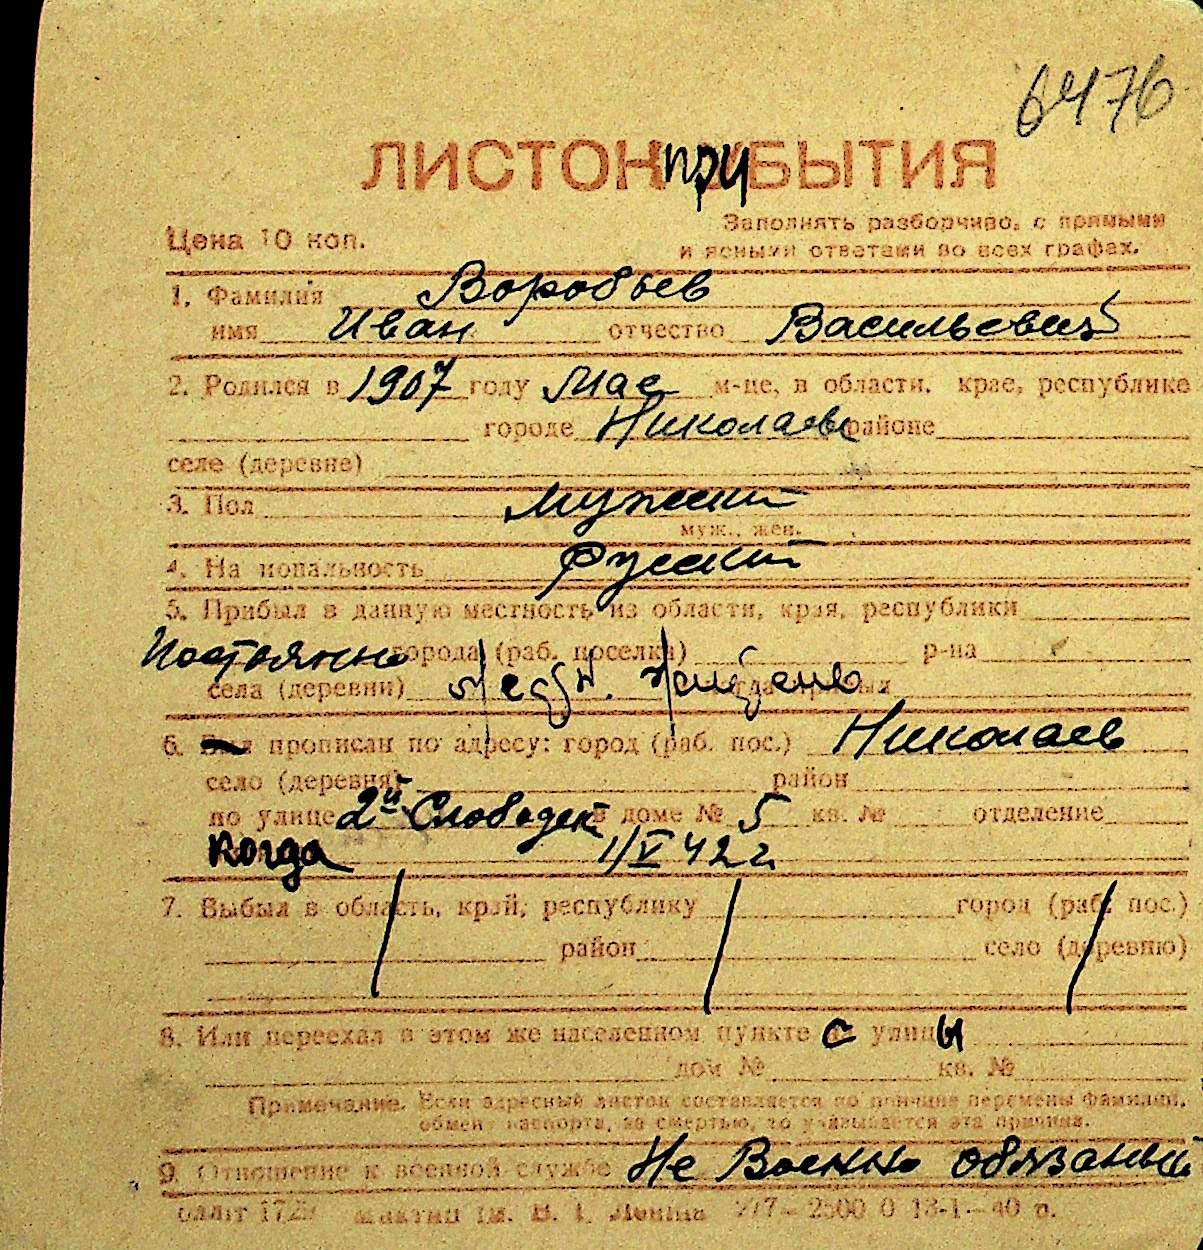 6476
ЛИСТОК при БЫТИЯ
Цена 10 коп.
Заполнять разборчиво, с прямыми
и ясными ответами во всех графах.
1. Фамилия Воробьев
имя Иван отчество Васильевич
2. Родился в 1907 году Мае м-це, в области, крае, республике
городе Николаеве районе
селе (деревне)
3. Пол мужской
муж., жен.
4. Национальность русский
5. Прибыл в данную местность из области, края, республики
Постоянно города (раб. поселка) р-на
села (деревни)
6. прописан по адресу: город (раб. пос.) Николаев
село (деревня) район
по улице 2й Слободск в доме № 5 кв. № отделение
Когда 1/V 42 г
7. Выбыл в область, край, республику город (раб. пос.)
район село (деревню)
8. Или переехал в этом же населенном пункте с улицы
дом № кв. №
Примечание. Если адресный листок составляется по причине перемены фамилии,
обмена паспорта, за смертью, то указывается эта причина.
9. Отношение к военной службе Не Военно обязанный
им. В. І. Леніна 277—2500 0 13-1—40 р.